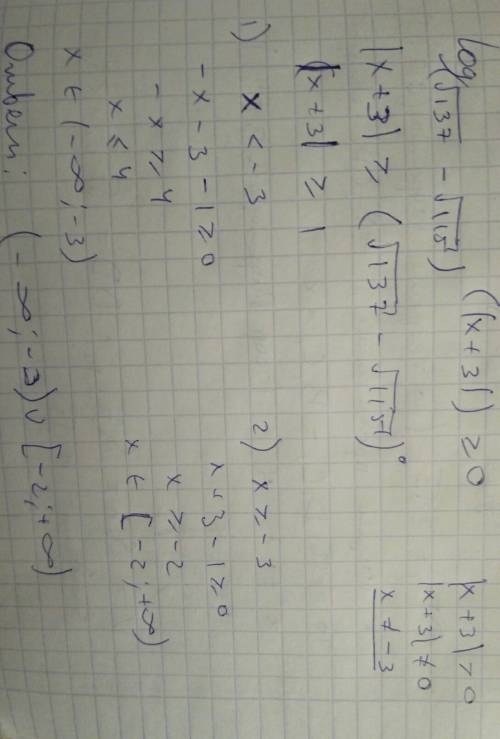 log(√137 - √115) (|x+3|) ≥ 0
|x+3| > 0
|x+3| ≠ 0
x ≠ -3
|x+3| ≥ (√137 - √115)⁰
|x+3| ≥ 1
1) x < -3
-x-3-1 ≥ 0
-x ≥ 4
x ≤ 4
x ∈ (-∞; -3)
2) x ≥ -3
x+3-1 ≥ 0
x ≥ -2
x ∈ [-2; +∞)
Ответ: (-∞; -3) ∪ [-2; +∞)